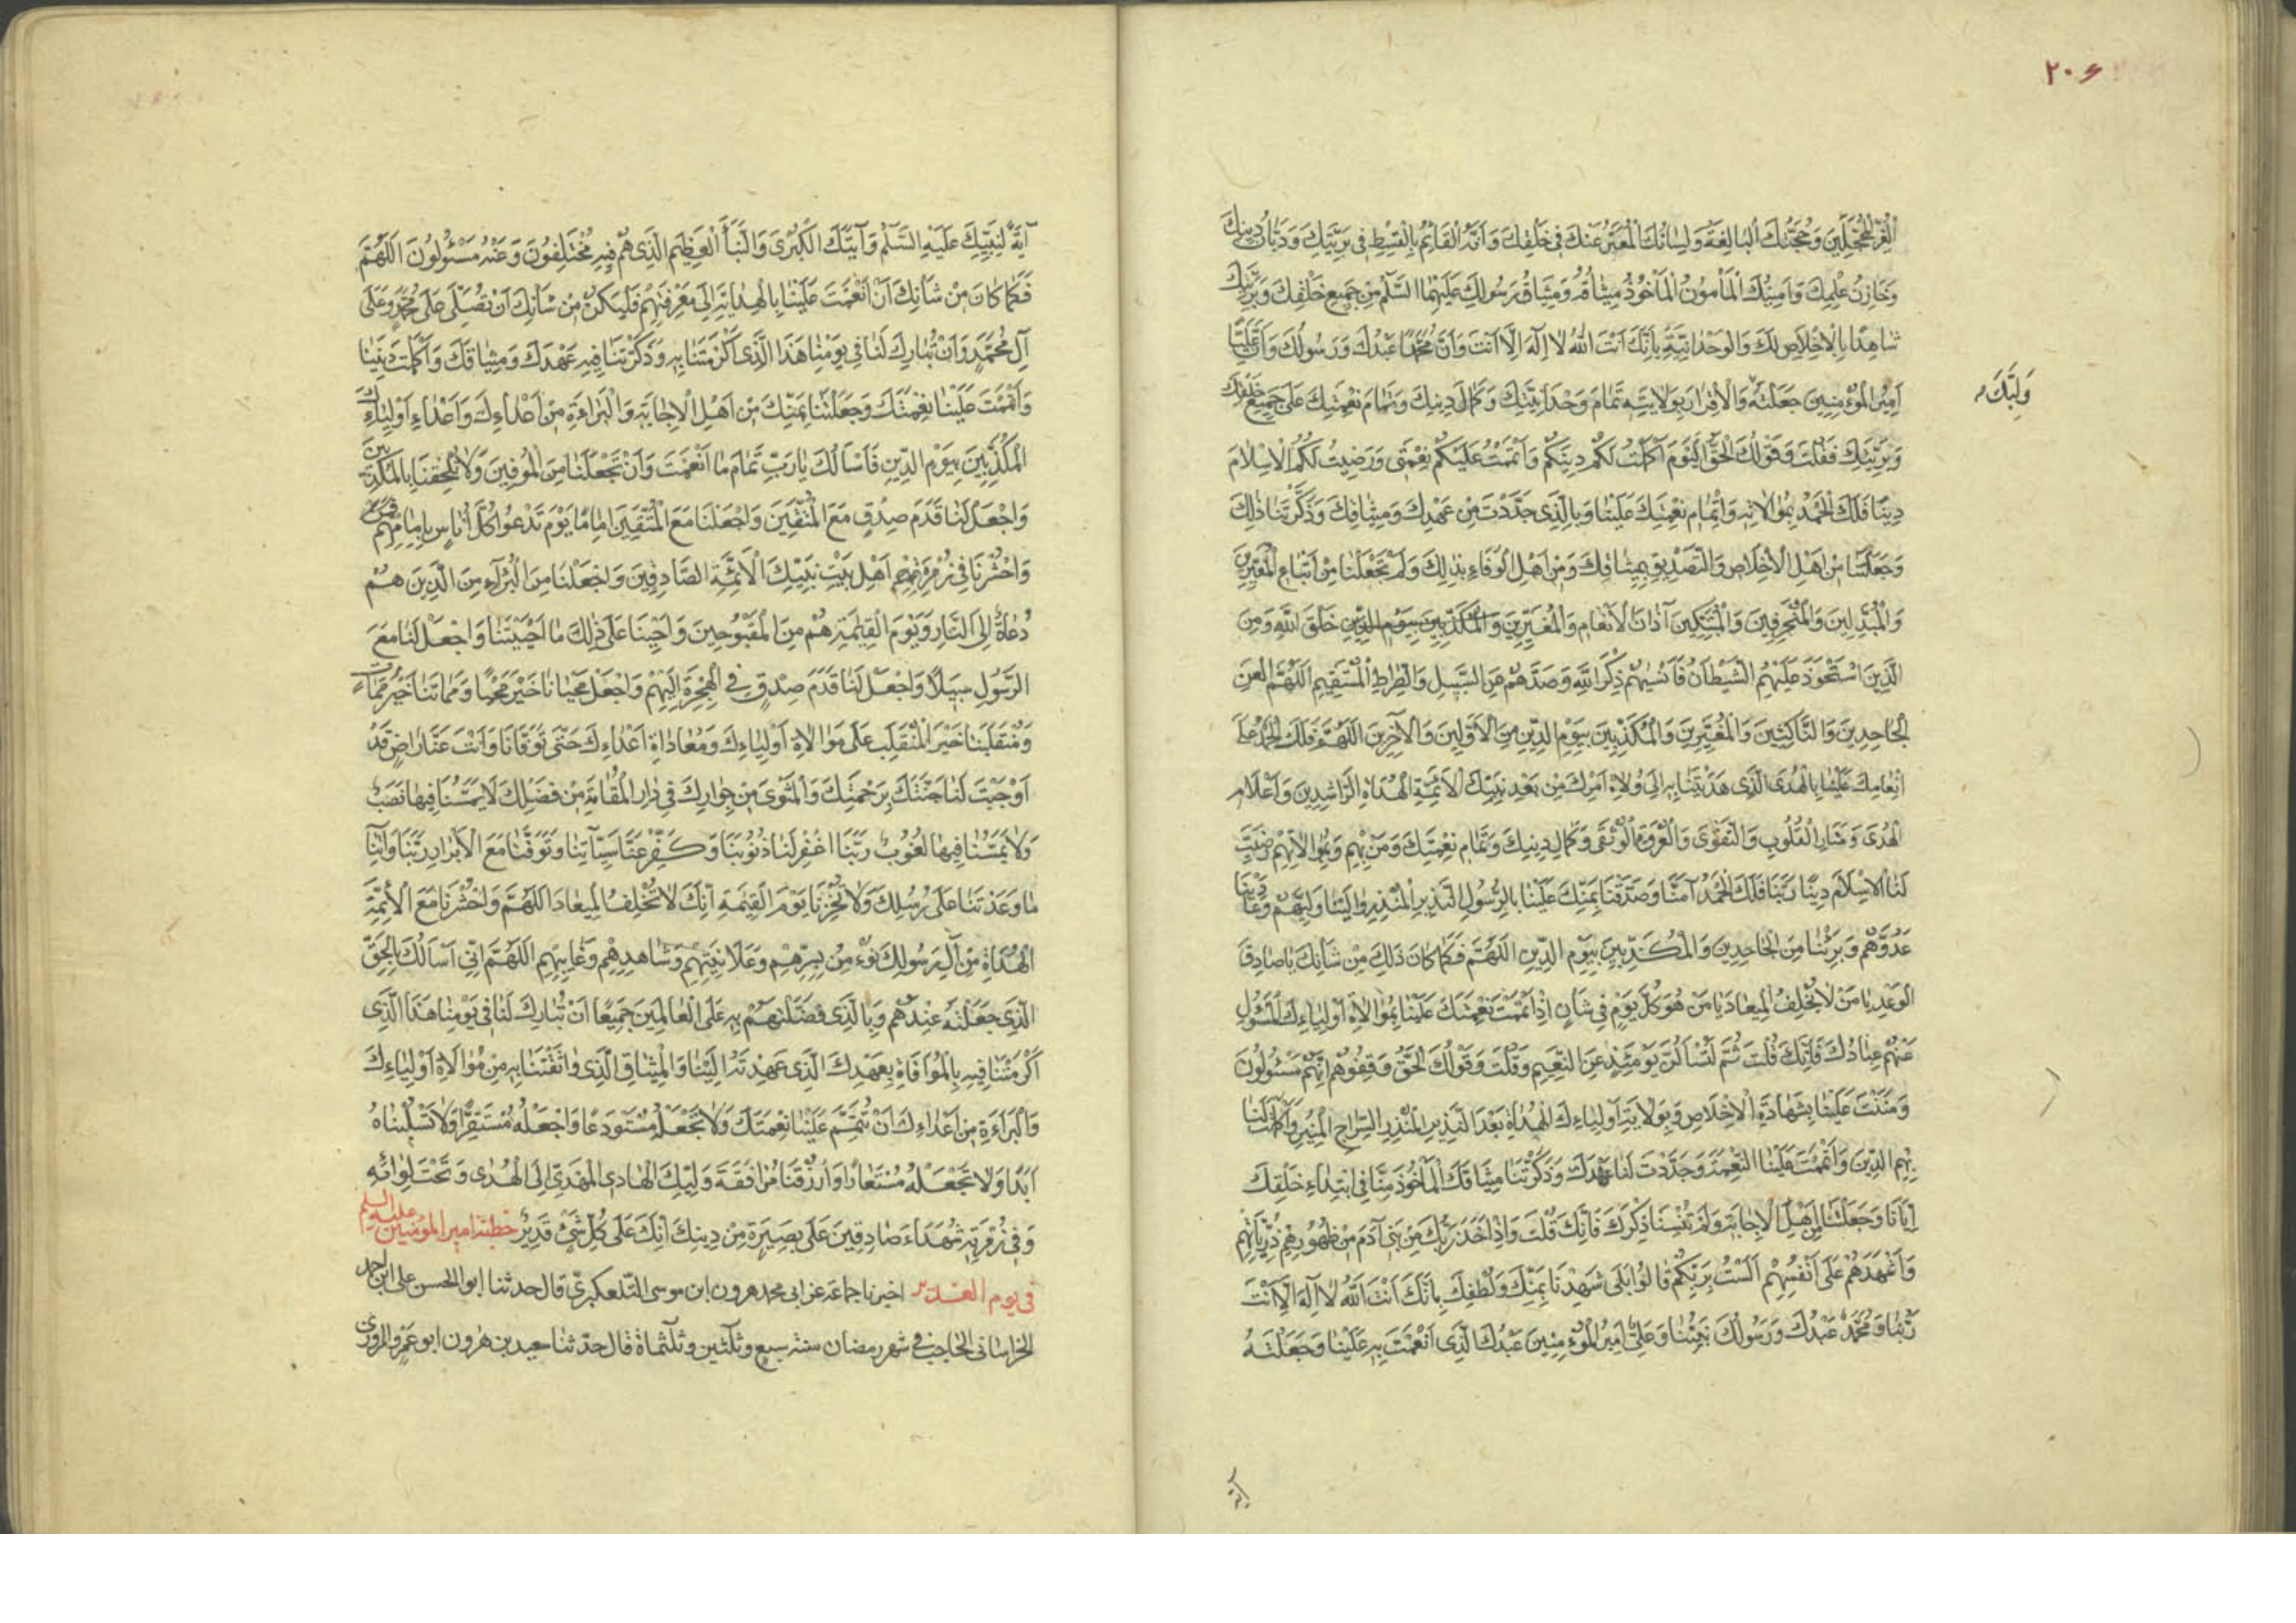 ۲۰۶
الْغُرِّ الْمُحَجَّلِينَ وَحُجَّتُكَ الْبَالِغَةُ وَلِسَانُكَ الْمُعَبِّرُ عَنْكَ فِي خَلْقِكَ وَأَنَّهُ الْقَائِمُ بِالْقِسْطِ فِي بَرِيَّتِكَ وَدَيَّانُ دِينِكَ
وَخَازِنُ عِلْمِكَ وَأَمِينُكَ الْمَأْمُونُ الْمَأْخُوذُ مِيثَاقُهُ وَمِيثَاقُ رَسُولِكَ عَلَيْهِمَا السَّلَمُ مِنْ جَمِيعِ خَلْقِكَ وَبَرِيَّتِكَ
شَاهِدًا بِالْإِخْلَاصِ لَكَ وَالْوَحْدَانِيَّةِ بِأَنَّكَ أَنْتَ اللهُ لَا إِلَهَ إِلَّا أَنْتَ وَأَنَّ مُحَمَّدًا عَبْدُكَ وَرَسُولُكَ وَأَنَّ عَلِيًّا
أَمِيرُ الْمُؤْمِنِينَ جَعَلْتَهُ وَالْإِقْرَارَ بِوَلَايَتِهِ تَمَامَ وَحْدَانِيَّتِكَ وَكَمَالَ دِينِكَ وَتَمَامَ نِعْمَتِكَ عَلَى جَمِيعِ خَلْقِكَ
وَلِيَّكَ
وَبَرِيَّتِكَ فَقُلْتَ وَقَوْلُكَ الْحَقُّ الْيَوْمَ أَكْمَلْتُ لَكُمْ دِينَكُمْ وَأَتْمَمْتُ عَلَيْكُمْ نِعْمَتِي وَرَضِيتُ لَكُمُ الْإِسْلَامَ
دِينًا فَلَكَ الْحَمْدُ بِمُوَالَاتِهِ وَإِتْمَامِ نِعْمَتِكَ عَلَيْنَا وَبِالَّذِي جَدَّدْتَ مِنْ عَهْدِكَ وَمِيثَاقِكَ وَذَكَّرْتَنَا ذَلِكَ
وَجَعَلْتَنَا مِنْ أَهْلِ الْإِخْلَاصِ وَالتَّصْدِيقِ بِمِيثَاقِكَ وَمِنْ أَهْلِ الْوَفَاءِ بِذَلِكَ وَلَمْ تَجْعَلْنَا مِنْ أَتْبَاعِ الْمُغَيِّرِينَ
وَالْمُبَدِّلِينَ وَالْمُنْحَرِفِينَ وَالْمُبَتِّكِينَ آذَانَ الْأَنْعَامِ وَالْمُغَيِّرِينَ وَالْمُكَذِّبِينَ بِيَوْمِ الدِّينِ خَلْقَ اللَّهِ وَمِنَ
الَّذِينَ اسْتَحْوَذَ عَلَيْهِمُ الشَّيْطَانُ فَأَنْسٰيهُمْ ذِكْرَ اللَّهِ وَصَدَّهُمْ عَنِ السَّبِيلِ وَالصِّرَاطِ الْمُسْتَقِيمِ اللَّهُمَّ الْعَنِ
الْجَاحِدِينَ وَالنَّاكِثِينَ وَالْمُغَيِّرِينَ وَالْمُكَذِّبِينَ بِيَوْمِ الدِّينِ مِنَ الْأَوَّلِينَ وَالْآخِرِينَ اللَّهُمَّ فَلَكَ الْحَمْدُ عَلَى
إِنْعَامِكَ عَلَيْنَا بِالْهُدَى الَّذِي هَدَيْتَنَا بِهِ إِلَى وُلَاةِ أَمْرِكَ مِنْ بَعْدِ نَبِيِّكَ الْأَئِمَّةِ الْهُدَاةِ الرَّاشِدِينَ وَأَعْلَامِ
الْهُدَى وَمَنَارِ الْقُلُوبِ وَالتَّقْوَى وَالْعُرْوَةِ الْوُثْقَى وَكَمَالِ دِينِكَ وَتَمَامِ نِعْمَتِكَ وَمَنْ بِهِمْ وَبِمُوَالَاتِهِمْ رَضِيتَ
لَنَا الْإِسْلَامَ دِينًا رَبَّنَا فَلَكَ الْحَمْدُ آمَنَّا وَصَدَّقْنَا بِمَنِّكَ عَلَيْنَا بِالرَّسُولِ النَّذِيرِ الْمُنْذِرِ وَالَيْنَا وَلِيَّهُمْ وَعَادَيْنَا
عَدُوَّهُمْ وَبَرِئْنَا مِنَ الْجَاحِدِينَ وَالْمُكَذِّبِينَ بِيَوْمِ الدِّينِ اللَّهُمَّ فَكَمَا كَانَ ذَلِكَ مِنْ شَأْنِكَ يَا صَادِقَ
الْوَعْدِ يَا مَنْ لَا يُخْلِفُ الْمِيعَادَ يَا مَنْ هُوَ كُلَّ يَوْمٍ فِي شَأْنٍ إِذْ أَتْمَمْتَ نِعْمَتَكَ عَلَيْنَا بِمُوَالَاةِ أَوْلِيَاءِكَ الْمَسْؤُولِ
عَنْهُمْ عِبَادُكَ فَإِنَّكَ قُلْتَ ثُمَّ لَتُسْأَلُنَّ يَوْمَئِذٍ عَنِ النَّعِيمِ وَقُلْتَ وَقَوْلُكَ الْحَقُّ وَقِفُوهُمْ إِنَّهُمْ مَسْئُولُونَ
وَمَنَنْتَ عَلَيْنَا بِشَهَادَةِ الْإِخْلَاصِ وَبِوَلَايَةِ أَوْلِيَاءِكَ الْهُدَاةِ بَعْدَ النَّذِيرِ الْمُنْذِرِ السِّرَاجِ الْمُنِيرِ وَأَكْمَلْتَ لَنَا
بِهِمُ الدِّينَ وَأَتْمَمْتَ عَلَيْنَا النِّعْمَةَ وَجَدَّدْتَ لَنَا عَهْدَكَ وَذَكَّرْتَنَا مِيثَاقَكَ الْمَأْخُوذَ مِنَّا فِي ابْتِدَاءِ خَلْقِكَ
إِيَّانَا وَجَعَلْتَنَا مِنْ أَهْلِ الْإِجَابَةِ وَلَمْ تُنْسِنَا ذِكْرَكَ فَإِنَّكَ قُلْتَ وَإِذْ أَخَذَ رَبُّكَ مِنْ بَنِي آدَمَ مِنْ ظُهُورِهِمْ ذُرِّيَّاتِهِمْ
وَأَشْهَدَهُمْ عَلَى أَنْفُسِهِمْ أَلَسْتُ بِرَبِّكُمْ قَالُوا بَلَى شَهِدْنَا بِمَنِّكَ وَلُطْفِكَ بِأَنَّكَ أَنْتَ اللَّهُ لَا إِلَهَ إِلَّا أَنْتَ
رَبُّنَا وَمُحَمَّدٌ عَبْدُكَ وَرَسُولُكَ نَبِيُّنَا وَعَلِيٌّ أَمِيرُ الْمُؤْمِنِينَ عَبْدُكَ الَّذِي أَنْعَمْتَ بِهِ عَلَيْنَا وَجَعَلْتَهُ
آية
آيَةً لِنَبِيِّكَ عَلَيْهِ السَّلَمُ وَآيَتَكَ الْكُبْرَى وَالنَّبَأَ الْعَظِيمَ الَّذِي هُمْ فِيهِ مُخْتَلِفُونَ وَعَنْهُ مَسْئُولُونَ اللَّهُمَّ
فَكَمَا كَانَ مِنْ شَأْنِكَ أَنْ أَنْعَمْتَ عَلَيْنَا بِالْهِدَايَةِ إِلَى مَعْرِفَتِهِمْ فَلْيَكُنْ مِنْ شَأْنِكَ أَنْ تُصَلِّيَ عَلَى مُحَمَّدٍ وَعَلَى
آلِ مُحَمَّدٍ وَأَنْ تُبَارِكَ لَنَا فِي يَوْمِنَا هَذَا الَّذِي أَكْرَمْتَنَا بِهِ وَذَكَّرْتَنَا فِيهِ عَهْدَكَ وَمِيثَاقَكَ وَأَكْمَلْتَ دِينَنَا
وَأَتْمَمْتَ عَلَيْنَا نِعْمَتَكَ وَجَعَلْتَنَا بِمَنِّكَ مِنْ أَهْلِ الْإِجَابَةِ وَالْبَرَاءَةِ مِنْ أَعْدَاءِكَ وَأَعْدَاءِ أَوْلِيَاءِكَ
الْمُكَذِّبِينَ بِيَوْمِ الدِّينِ فَأَسْأَلُكَ يَا رَبِّ تَمَامَ مَا أَنْعَمْتَ وَأَنْ تَجْعَلَنَا مِنَ الْمُوفِينَ وَلَا تُلْحِقَنَا بِالْمُكَذِّبِينَ
وَاجْعَلْ لَنَا قَدَمَ صِدْقٍ مَعَ الْمُتَّقِينَ وَاجْعَلْنَا مَعَ الْمُتَّقِينَ إِمَامًا يَوْمَ تَدْعُوا كُلَّ أُنَاسٍ بِإِمَامِهِمْ
وَاحْشُرْنَا فِي زُمْرَةِ أَهْلِ بَيْتِ نَبِيِّكَ الْأَئِمَّةِ الصَّادِقِينَ وَاجْعَلْنَا مِنَ الْبُرَآءِ مِنَ الَّذِينَ هُمْ
دُعَاةٌ إِلَى النَّارِ وَيَوْمَ الْقِيٰمَةِ هُمْ مِنَ الْمَقْبُوحِينَ وَأَحْيِنَا عَلَى ذٰلِكَ مَا أَحْيَيْتَنَا وَاجْعَلْ لَنَا مَعَ
الرَّسُولِ سَبِيلًا وَاجْعَلْ لَنَا قَدَمَ صِدْقٍ فِي الْهِجْرَةِ إِلَيْهِمْ وَاجْعَلْ مَحْيَانَا خَيْرَ مَحْيًا وَمَمَاتَنَا خَيْرَ مَمَاتٍ
وَمُنْقَلَبَنَا خَيْرَ الْمُنْقَلَبِ عَلَى مُوَالَاةِ أَوْلِيَاءِكَ وَمُعَادَاةِ أَعْدَاءِكَ حَتَّى تَوَفَّانَا وَأَنْتَ عَنَّا رَاضٍ قَدْ
أَوْجَبْتَ لَنَا جَنَّتَكَ بِرَحْمَتِكَ وَالْمَثْوَى مِنْ جِوَارِكَ فِي دَارِ الْمُقَامَةِ مِنْ فَضْلِكَ لَا يَمَسُّنَا فِيهَا نَصَبٌ
وَلَا يَمَسُّنَا فِيهَا لُغُوبٌ رَبَّنَا اغْفِرْ لَنَا ذُنُوبَنَا وَكَفِّرْ عَنَّا سَيِّآتِنَا وَتَوَفَّنَا مَعَ الْأَبْرَارِ رَبَّنَا وَآتِنَا
مَا وَعَدْتَنَا عَلَى رُسُلِكَ وَلَا تُخْزِنَا يَوْمَ الْقِيٰمَةِ إِنَّكَ لَا تُخْلِفُ الْمِيعَادَ اللَّهُمَّ وَاحْشُرْنَا مَعَ الْأَئِمَّةِ
الْهُدَاةِ مِنْ آلِ رَسُولِكَ نُؤْمِنُ بِسِرِّهِمْ وَعَلَانِيَتِهِمْ وَشَاهِدِهِمْ وَغَائِبِهِمِ اللَّهُمَّ إِنِّي أَسْأَلُكَ بِالْحَقِّ
الَّذِي جَعَلْتَهُ عِنْدَهُمْ وَبِالَّذِي فَضَّلْتَهُمْ بِهِ عَلَى الْعَالَمِينَ جَمِيعًا أَنْ تُبَارِكَ لَنَا فِي يَوْمِنَا هَذَا الَّذِي
أَكْرَمْتَنَا فِيهِ بِالْمُوَافَاةِ بِعَهْدِكَ الَّذِي عَهِدْتَهُ إِلَيْنَا وَالْمِيثَاقِ الَّذِي وَاثَقْتَنَا بِهِ مِنْ مُوَالَاةِ أَوْلِيَاءِكَ
وَالْبَرَاءَةِ مِنْ أَعْدَاءِكَ أَنْ تُتَمِّمَ عَلَيْنَا نِعْمَتَكَ وَلَا تَجْعَلْهُ مُسْتَوْدَعًا وَاجْعَلْهُ مُسْتَقِرًّا وَلَا تَسْلُبْنَاهُ
أَبَدًا وَلَا تَجْعَلْهُ مُسْتَعَارًا وَارْزُقْنَا مُرَافَقَةَ وَلِيِّكَ الْهَادِي الْمَهْدِيِّ إِلَى الْهُدَى وَتَحْتَ لِوَائِهِ
وَفِي زُمْرَتِهِ شُهَدَاءَ صَادِقِينَ عَلَى بَصِيرَةٍ مِنْ دِينِكَ إِنَّكَ عَلَى كُلِّ شَيْءٍ قَدِيرٌ خطبة امير المؤمنين عليه السلم
فى يوم الغدير اخبرنا جماعة عن ابى محمد هرون ابن موسى التلعكبرىّ قال حدثنا ابو الحسن على ابن احمد
الخراسانى الحاجب فى شهر رمضان سنة سبع وثلثين وثلثماة قال حدّثنا سعيد بن هٰرون ابو عمرو المروزى